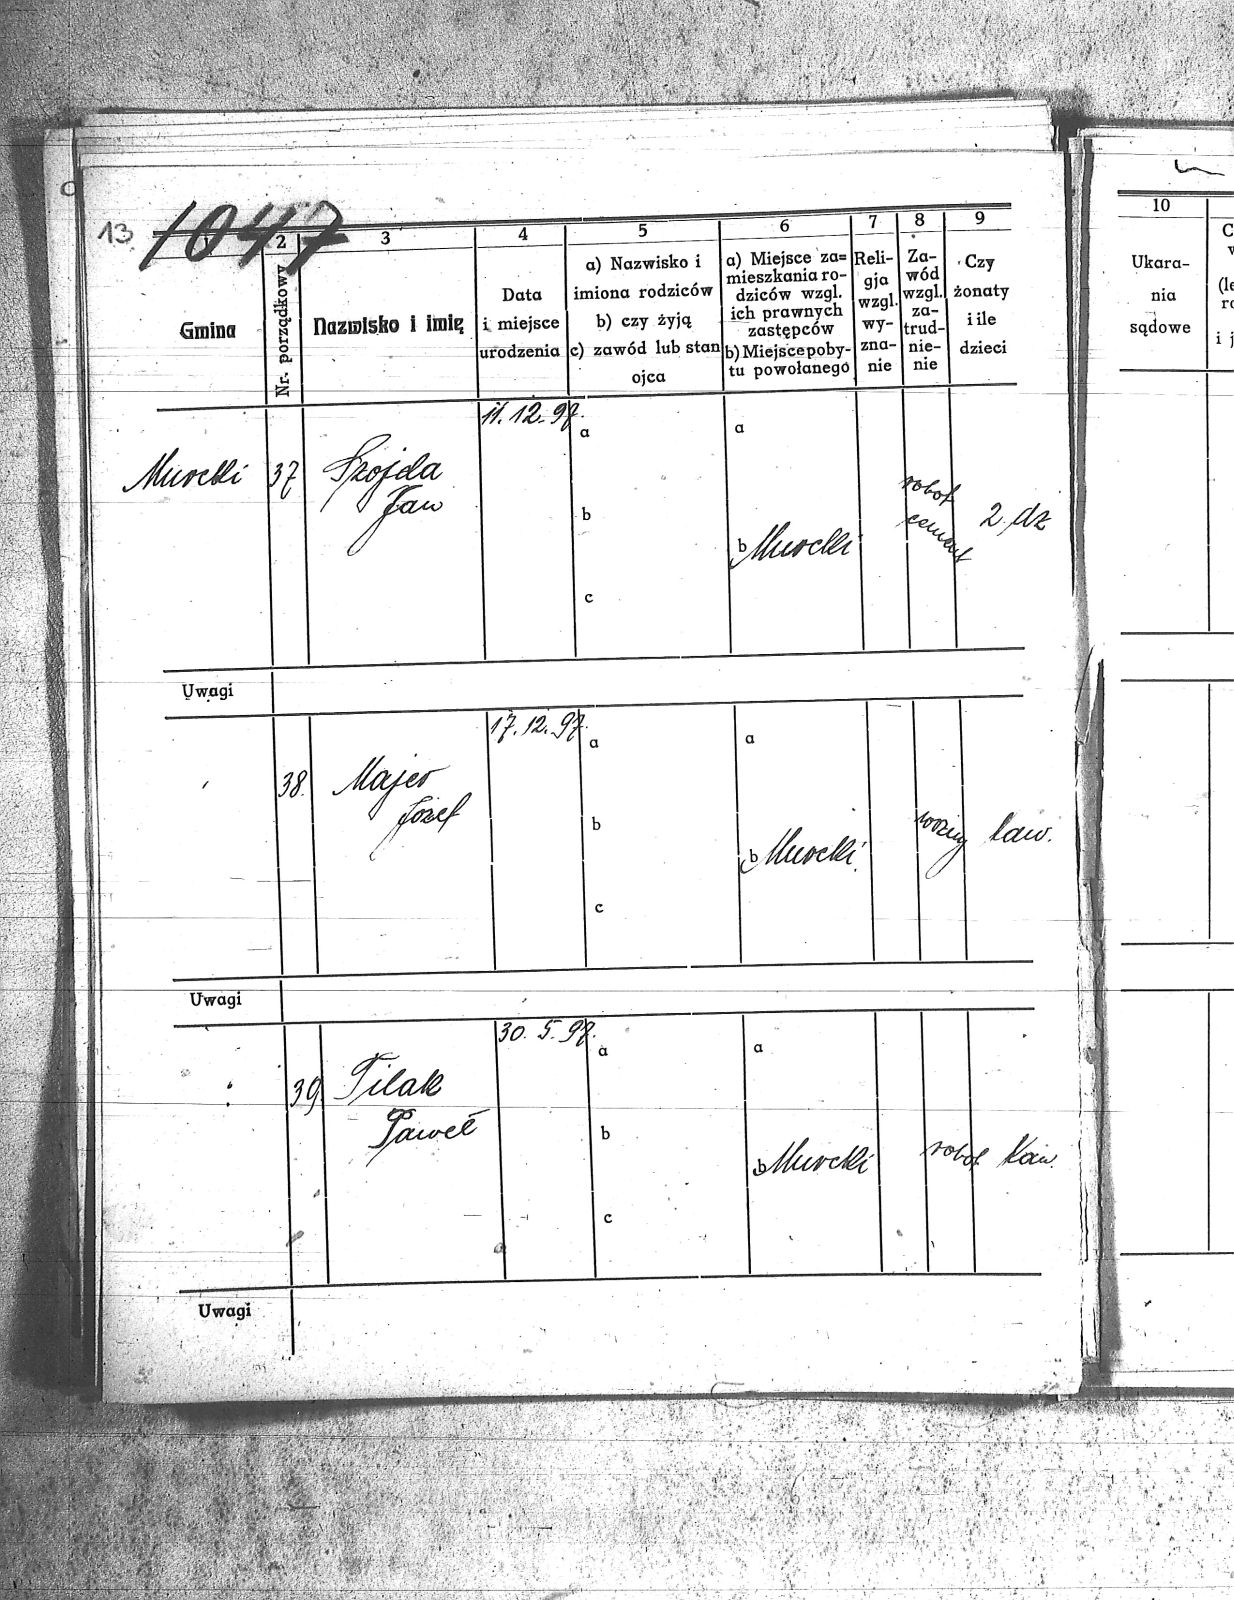 13.
1047
1 2 3 4 5 6 7 8 9
Gmina
Nr. porządkowy
Nazwisko i imię
Data
i miejsce
urodzenia
a) Nazwisko i
imiona rodziców
b) czy żyją
c) zawód lub stan
ojca
a) Miejsce za=
mieszkania ro-
dziców wzgl.
ich prawnych
zastępców
b) Miejsce poby-
tu powołanego
Reli-
gja
wzgl.
wy-
zna-
nie
Za-
wód
wzgl.
za-
trud-
nie-
nie
Czy
żonaty
i ile
dzieci
Murcki
37
Szojda
Jan
11. 12. 97.
a
b
c
a
b Murcki
robot
cement
2 dz
Uwagi
38.
Majer
Józef
17. 12. 97.
a
b
c
a
b Murcki
woźny
kaw.
Uwagi
39
Pilak
Paweł
30. 5. 97.
a
b
c
a
b Murcki
robot
kaw.
Uwagi
10
Ukara-
nia
sądowe